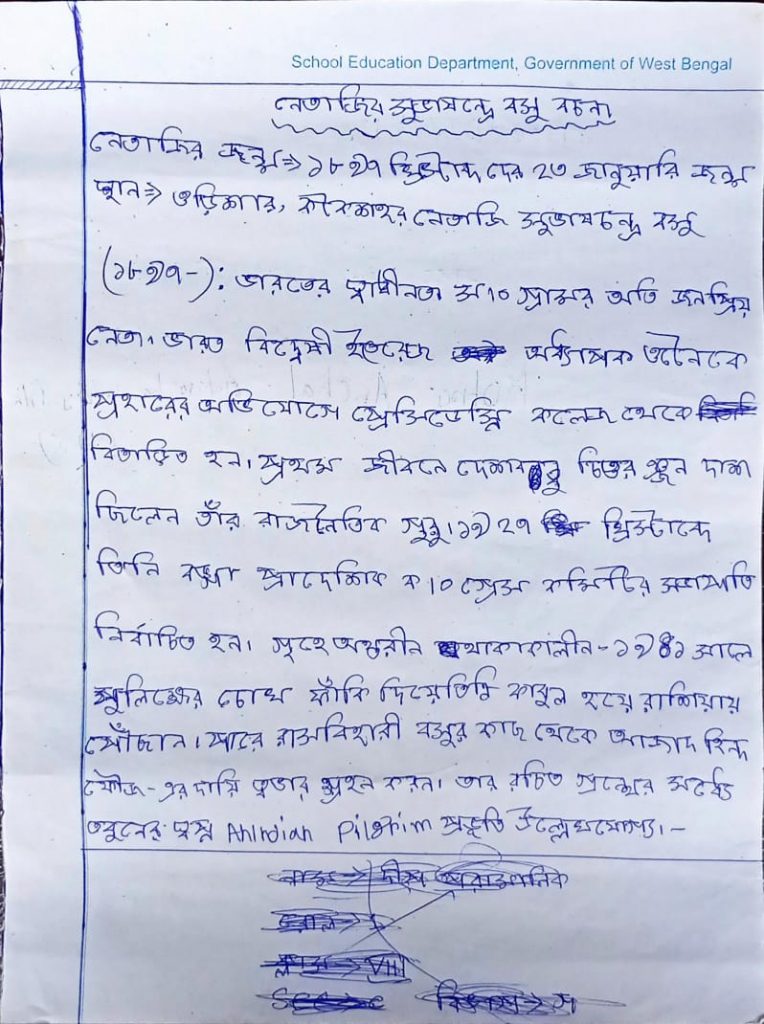 School Education Department, Government of West Bengal
নেতাজির সুভাষচন্দ্র বসু রচনা
নেতাজির জন্ম⇒ ১৮৯৭ খ্রিস্টাব্দ দের ২৩ জানুয়ারি জন্ম
স্থান⇒ ওড়িশার, কটকশহর নেতাজি সুভাষচন্দ্র বসু
(১৮৯৭-): ভারতের স্বাধীনতা স।০ গ্রামর অতি জনপ্রিয়
নেতা। ভারত বিদ্বেষী ইংরেজ অধ্যাপক ওটেনকে
প্রহারের অভিযোগে প্রেসিডেন্সি কলেজ থেকে
বিতাড়িত হন। প্রথম জীবনে দেশবন্ধু চিত্তরঞ্জন দাশ
ছিলেন তাঁর রাজনৈতিক গুরু। ১৯২৭ খ্রিস্টাব্দে
তিনি বঙ্গা প্রাদেশিক ক।০ গ্রেস কমিটির সভাপতি
নির্বাচিত হন। গৃহে অন্তরীন থাকাকালীন-১৯৪১ সালে
পুলিশের চোখ ফাঁকি দিয়ে তিনি কাবুল হয়ে রাশিয়ায়
পৌঁছান। পরে রাসবিহারী বসুর কাছ থেকে আজাদ হিন্দ
ফৌজ-এর দায়ি ত্বভার গ্রহন করন। তার রচিত গ্রন্থের মধ্যে
তরুনের স্বপ্ন AnIndian Pilgrim প্রভৃতি উল্লেখযোগ্য।-